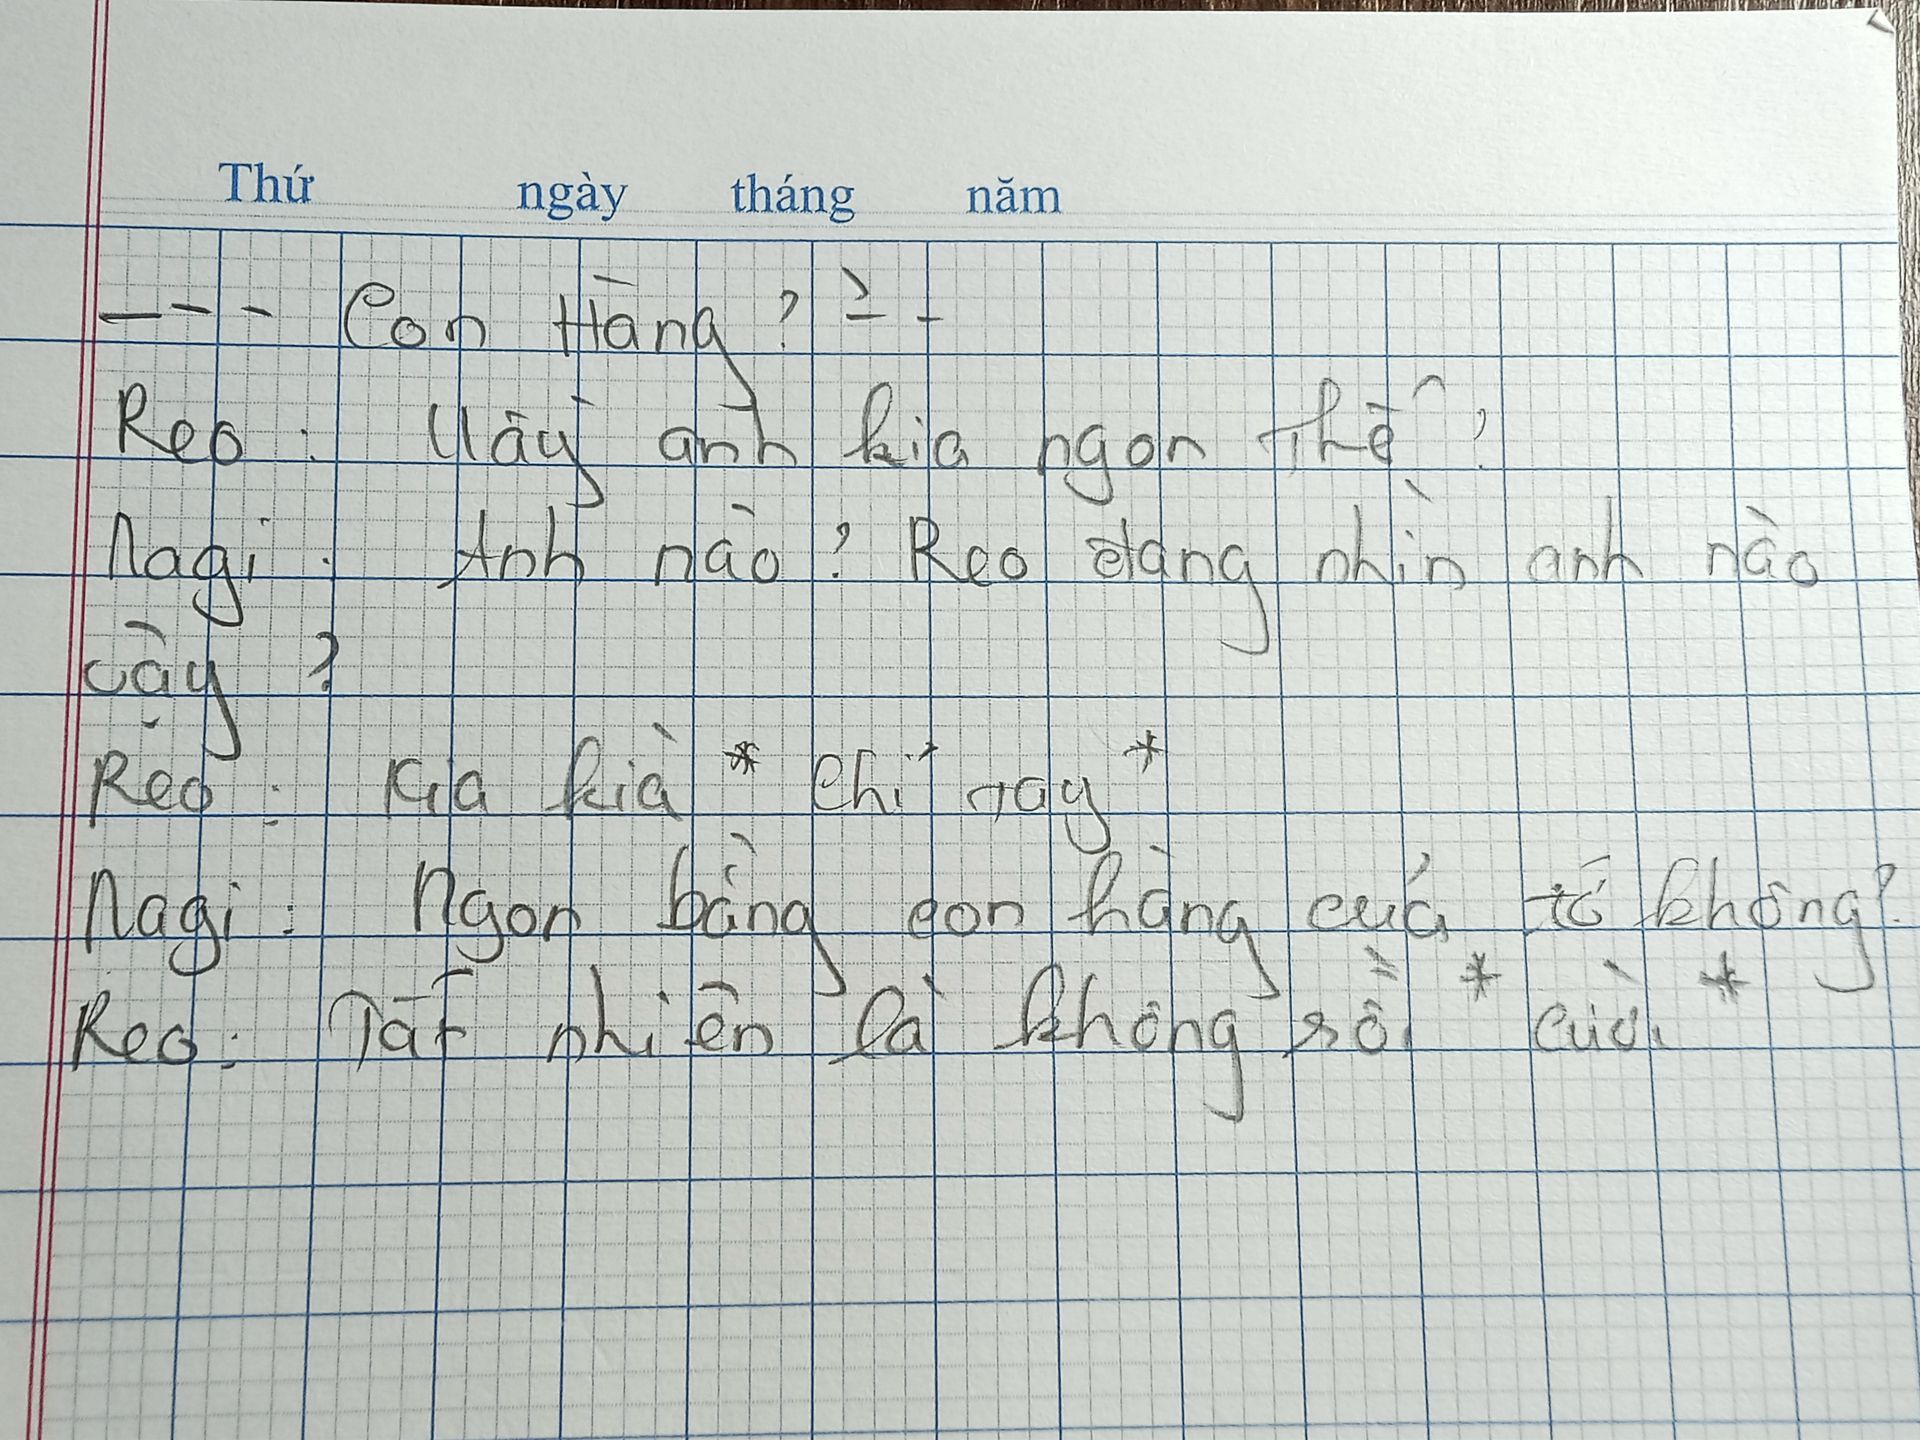 Thứ ngày tháng năm
--- Con Hàng? --
Reo: Uầy anh kia ngon thế?
Nagi: Anh nào? Reo đang nhìn anh nào
vậy?
Reo: Kia kìa * chỉ tay *
Nagi: Ngon bằng con hàng của tớ không?
Reo: Tất nhiên là không rồi * cười *